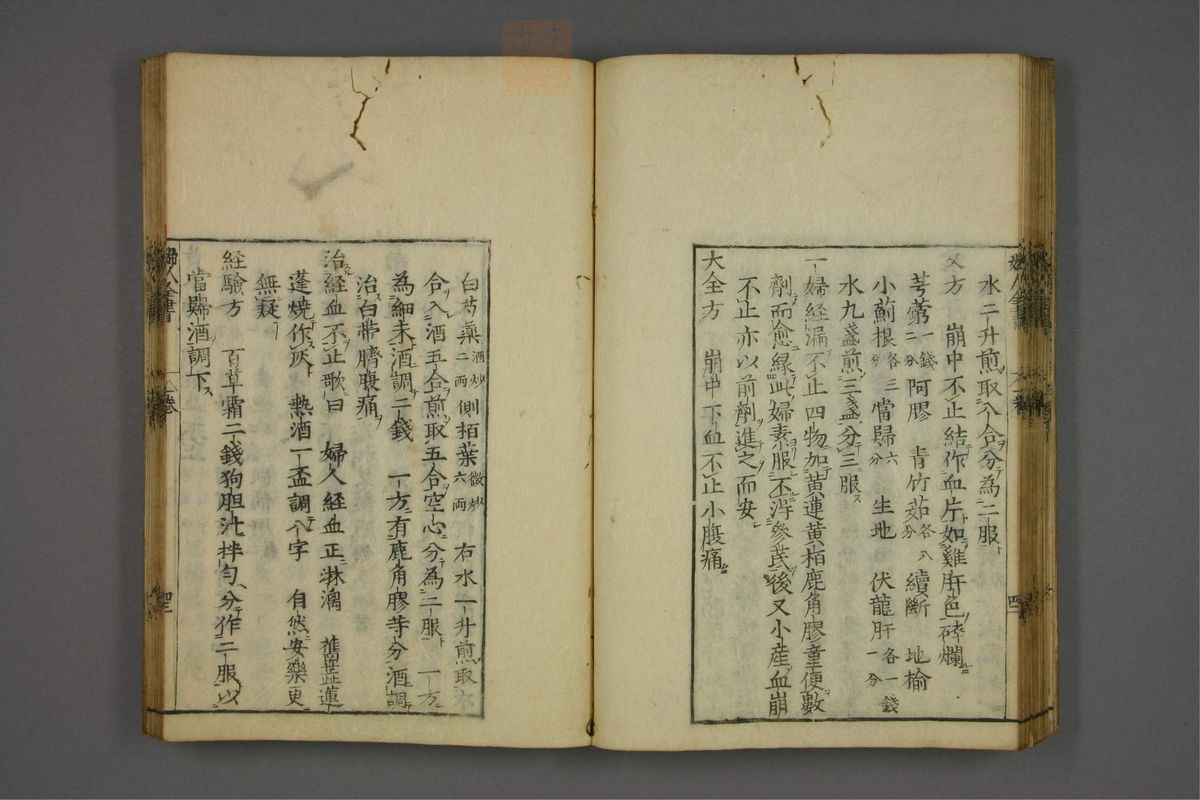 水二升煎取八合分為二服
又方　崩中不止結作血片如雞肝色碎爛
芎藭一錢二分阿膠　青竹茹各八分續斷　地榆
小薊根各三分當歸六分　生地　伏龍肝各一錢一分
水九盞煎三盞分三服
一婦経漏不止四物加黄連黄栢鹿角膠童便數
劑而愈緑此婦素服不淂參茋後又小産血崩
不止亦以前劑進之而安
大全方　崩中下血不止小腹痛
白芍藥二両酒炒側栢葉六両微炒　右水一升煎取六
合入酒五合煎取五合空心分為二服　一方
為細末酒調二錢　一方有鹿角膠等分酒調
治白帯臍腹痛
治経血不止歌曰　婦人経血正淋漓　舊蓮
蓬焼作灰　熱酒一盃調八字　自然安樂更
無疑
経驗方　百草霜二錢狗胆汁拌匀分作二服以
當歸酒調下
婦人全書